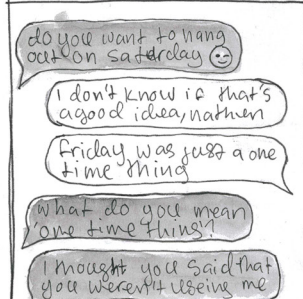 do you want to hang
out on saturday
I don't know if that's
a good idea, nathen
friday was just a one
time thing
what do you mean
'one time thing'?
I thought you said that
you weren't useing me